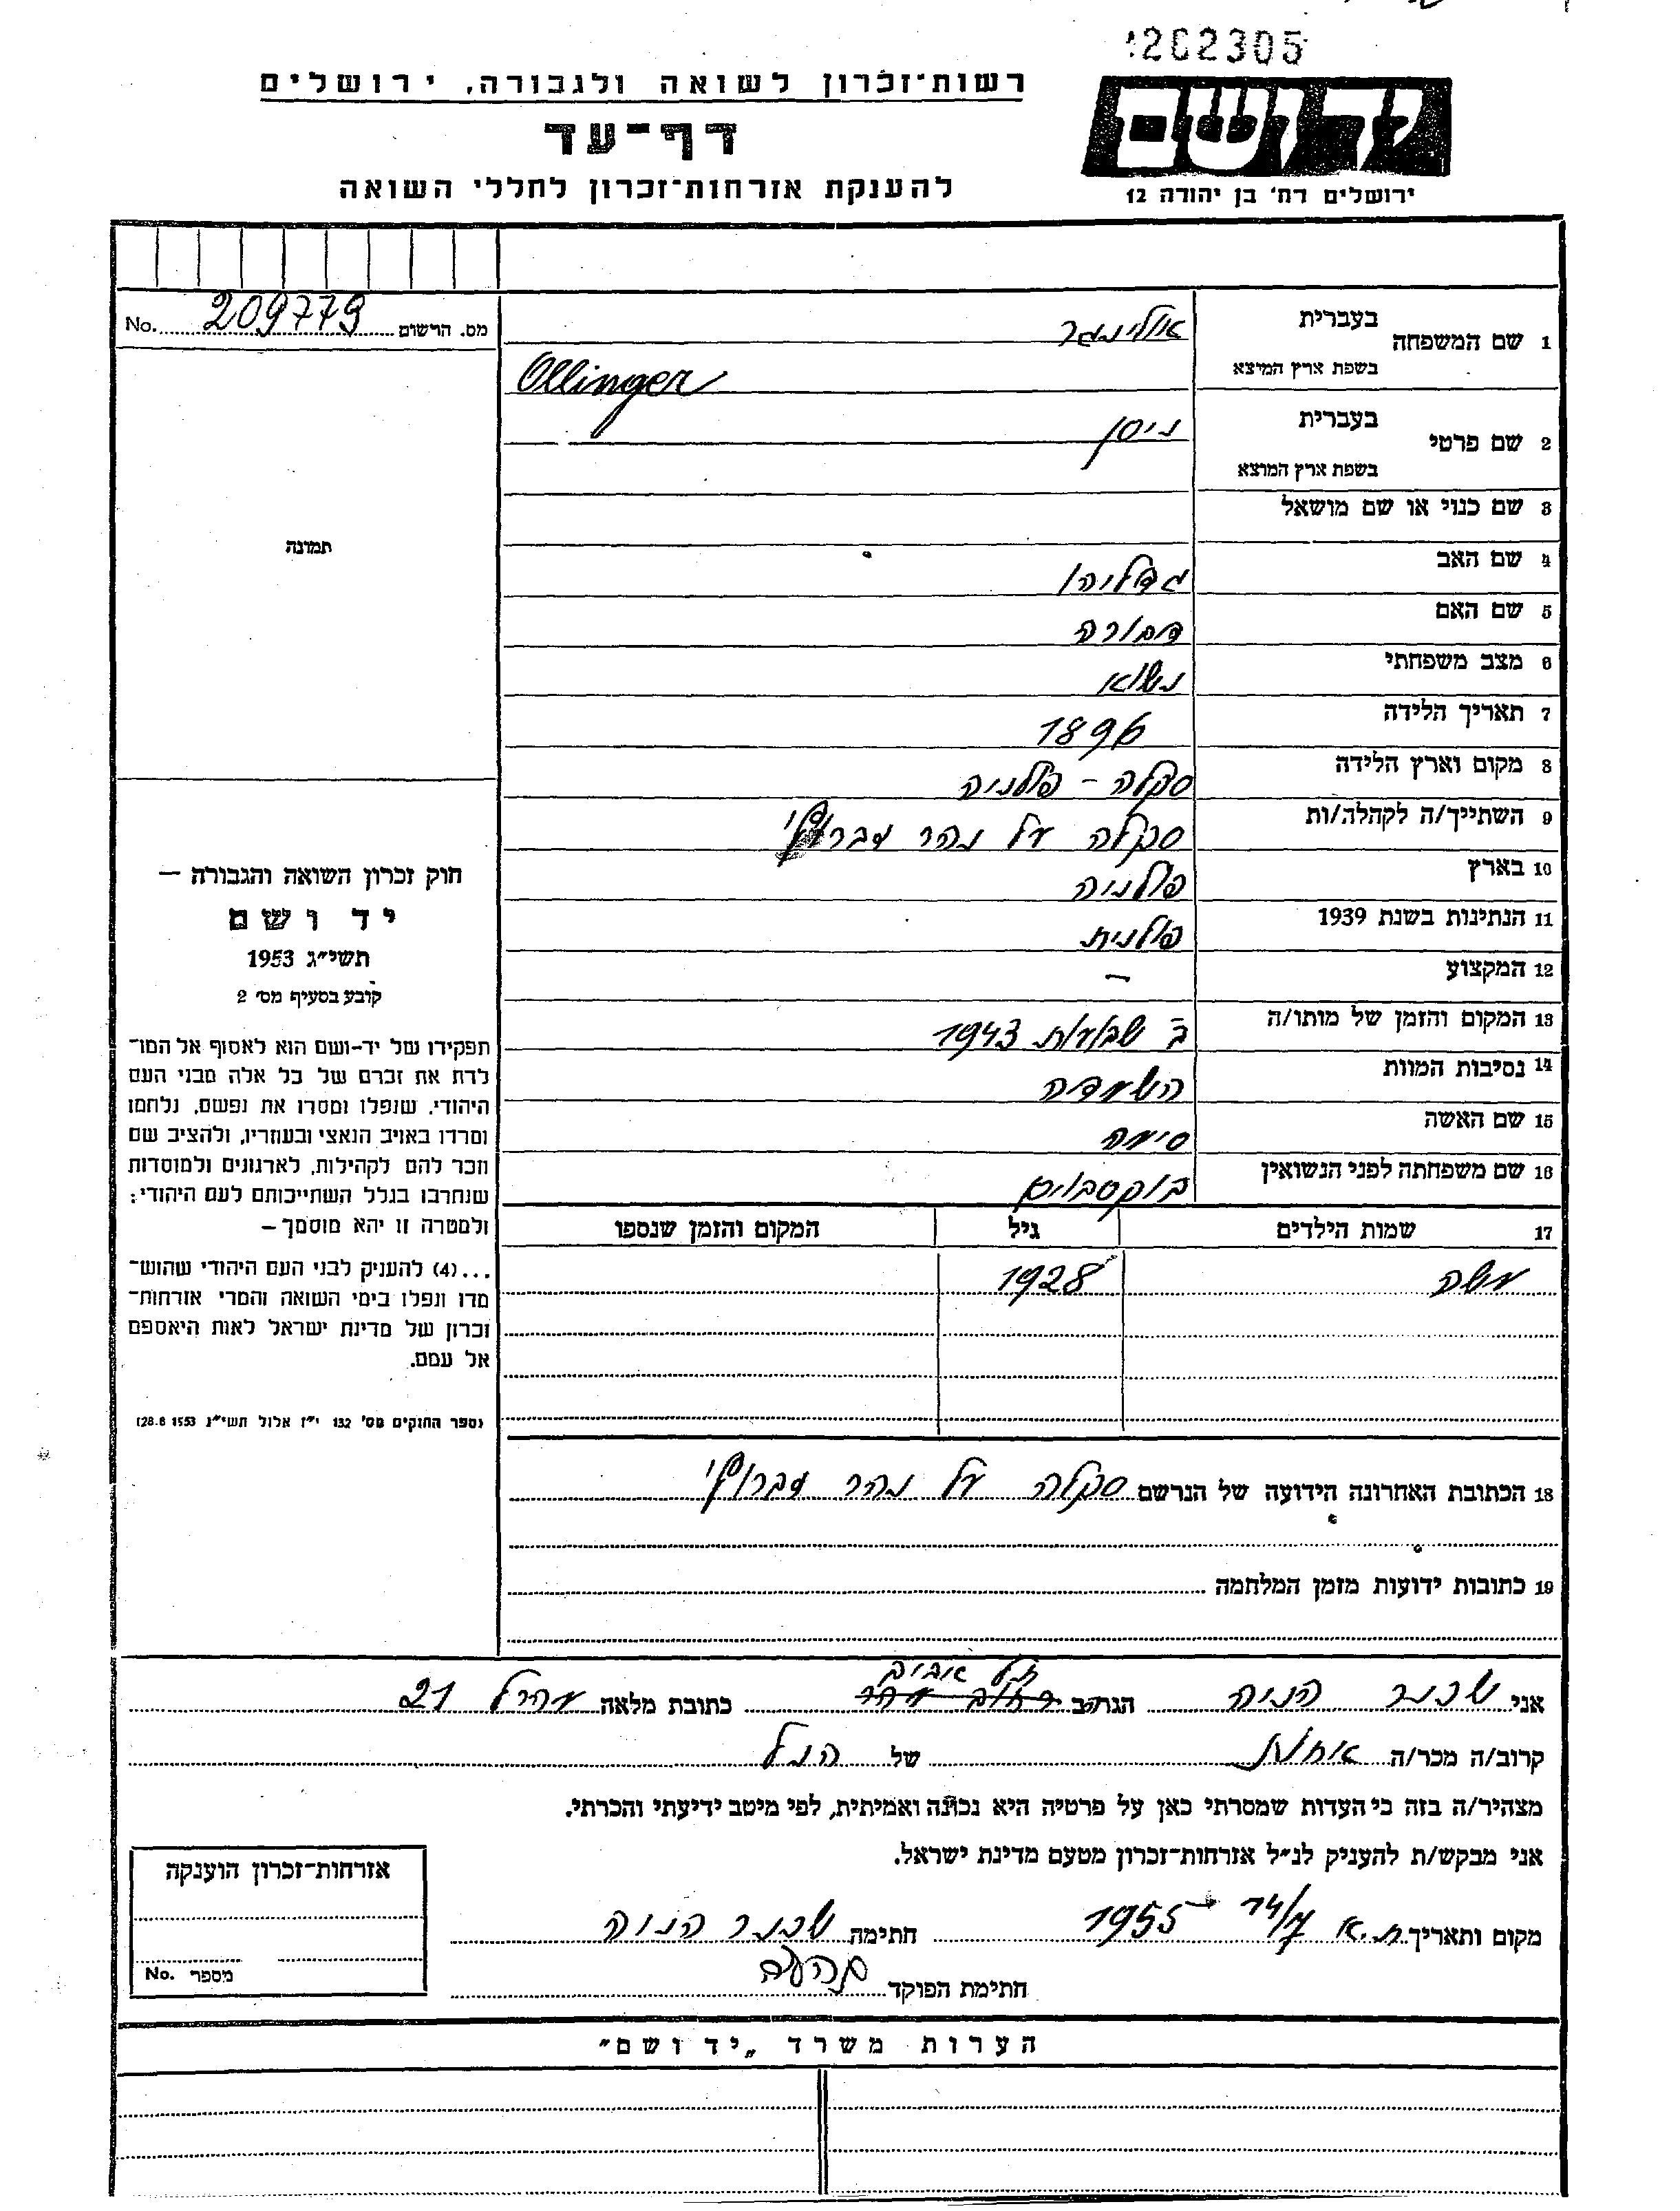 1262305
רשות־זכרון לשואה ולגבורה, ירושלים
דף־עד
להענקת אזרחות־זכרון לחללי השואה
יד ושם
ירושלים רח' בן יהודה 12
מס. הרשום 209779 No.
1 שם המשפחה בעברית אולינגר
בשפת ארץ המוצא Ollinger
2 שם פרטי בעברית ניסן
בשפת ארץ המוצא
3 שם כנוי או שם מושאל
4 שם האב גדליהו
5 שם האם דבורה
6 מצב משפחתי נשוא
7 תאריך הלידה 1896
8 מקום וארץ הלידה סקלה - פולניה
9 השתייך/ה לקהלה/ות סקלה על נהר
10 בארץ פולניה
11 הנתינות בשנת 1939 פולנית
12 המקצוע –
13 המקום והזמן של מותו/ה ב שבועות 1943
14 נסיבות המוות השמדה
15 שם האשה סימה
16 שם משפחתה לפני הנשואין בוקסבוים
17 שמות הילדים גיל המקום והזמן שנספו
משה 1928
18 הכתובת האחרונה הידועה של הנרשם סקלה על נהר
19 כתובות ידועות מזמן המלחמה
תמונה
חוק זכרון השואה והגבורה —
יד ושם
תשי"ג 1953
קובע בסעיף מס' 2
תפקידו של יד-ושם הוא לאסוף אל המו־
לדת את זכרם של כל אלה מבני העם
היהודי, שנפלו ומסרו את נפשם, נלחמו
ומרדו באויב הנאצי ובעוזריו, ולהציב שם
וזכר להם לקהילות, לארגונים ולמוסדות
שנחרבו בגלל השתייכותם לעם היהודי;
ולמטרה זו יהא מוסמך –
...(4) להעניק לבני העם היהודי שהוש־
מדו ונפלו בימי השואה והמרי אזרחות־
זכרון של מדינת ישראל לאות היאספם
אל עמם.
(ספר החוקים מס' 132 י"ז אלול תשי"ג 28.8.1953)
תל אביב
אני שכנר הניה הגר/ה ב כתובת מלאה מהרל 21
קרוב/ה מכר/ה אחות של הנל
מצהיר/ה בזה כי העדות שמסרתי כאן על פרטיה היא נכונה ואמיתית, לפי מיטב ידיעתי והכרתי.
אני מבקש/ת להעניק לנ"ל אזרחות־זכרון מטעם מדינת ישראל.
מקום ותאריך ת.א 14/7 1955 חתימה שכנר הניה
חתימת הפוקד
אזרחות־זכרון הוענקה
מספר No.
הערות משרד „יד ושם"